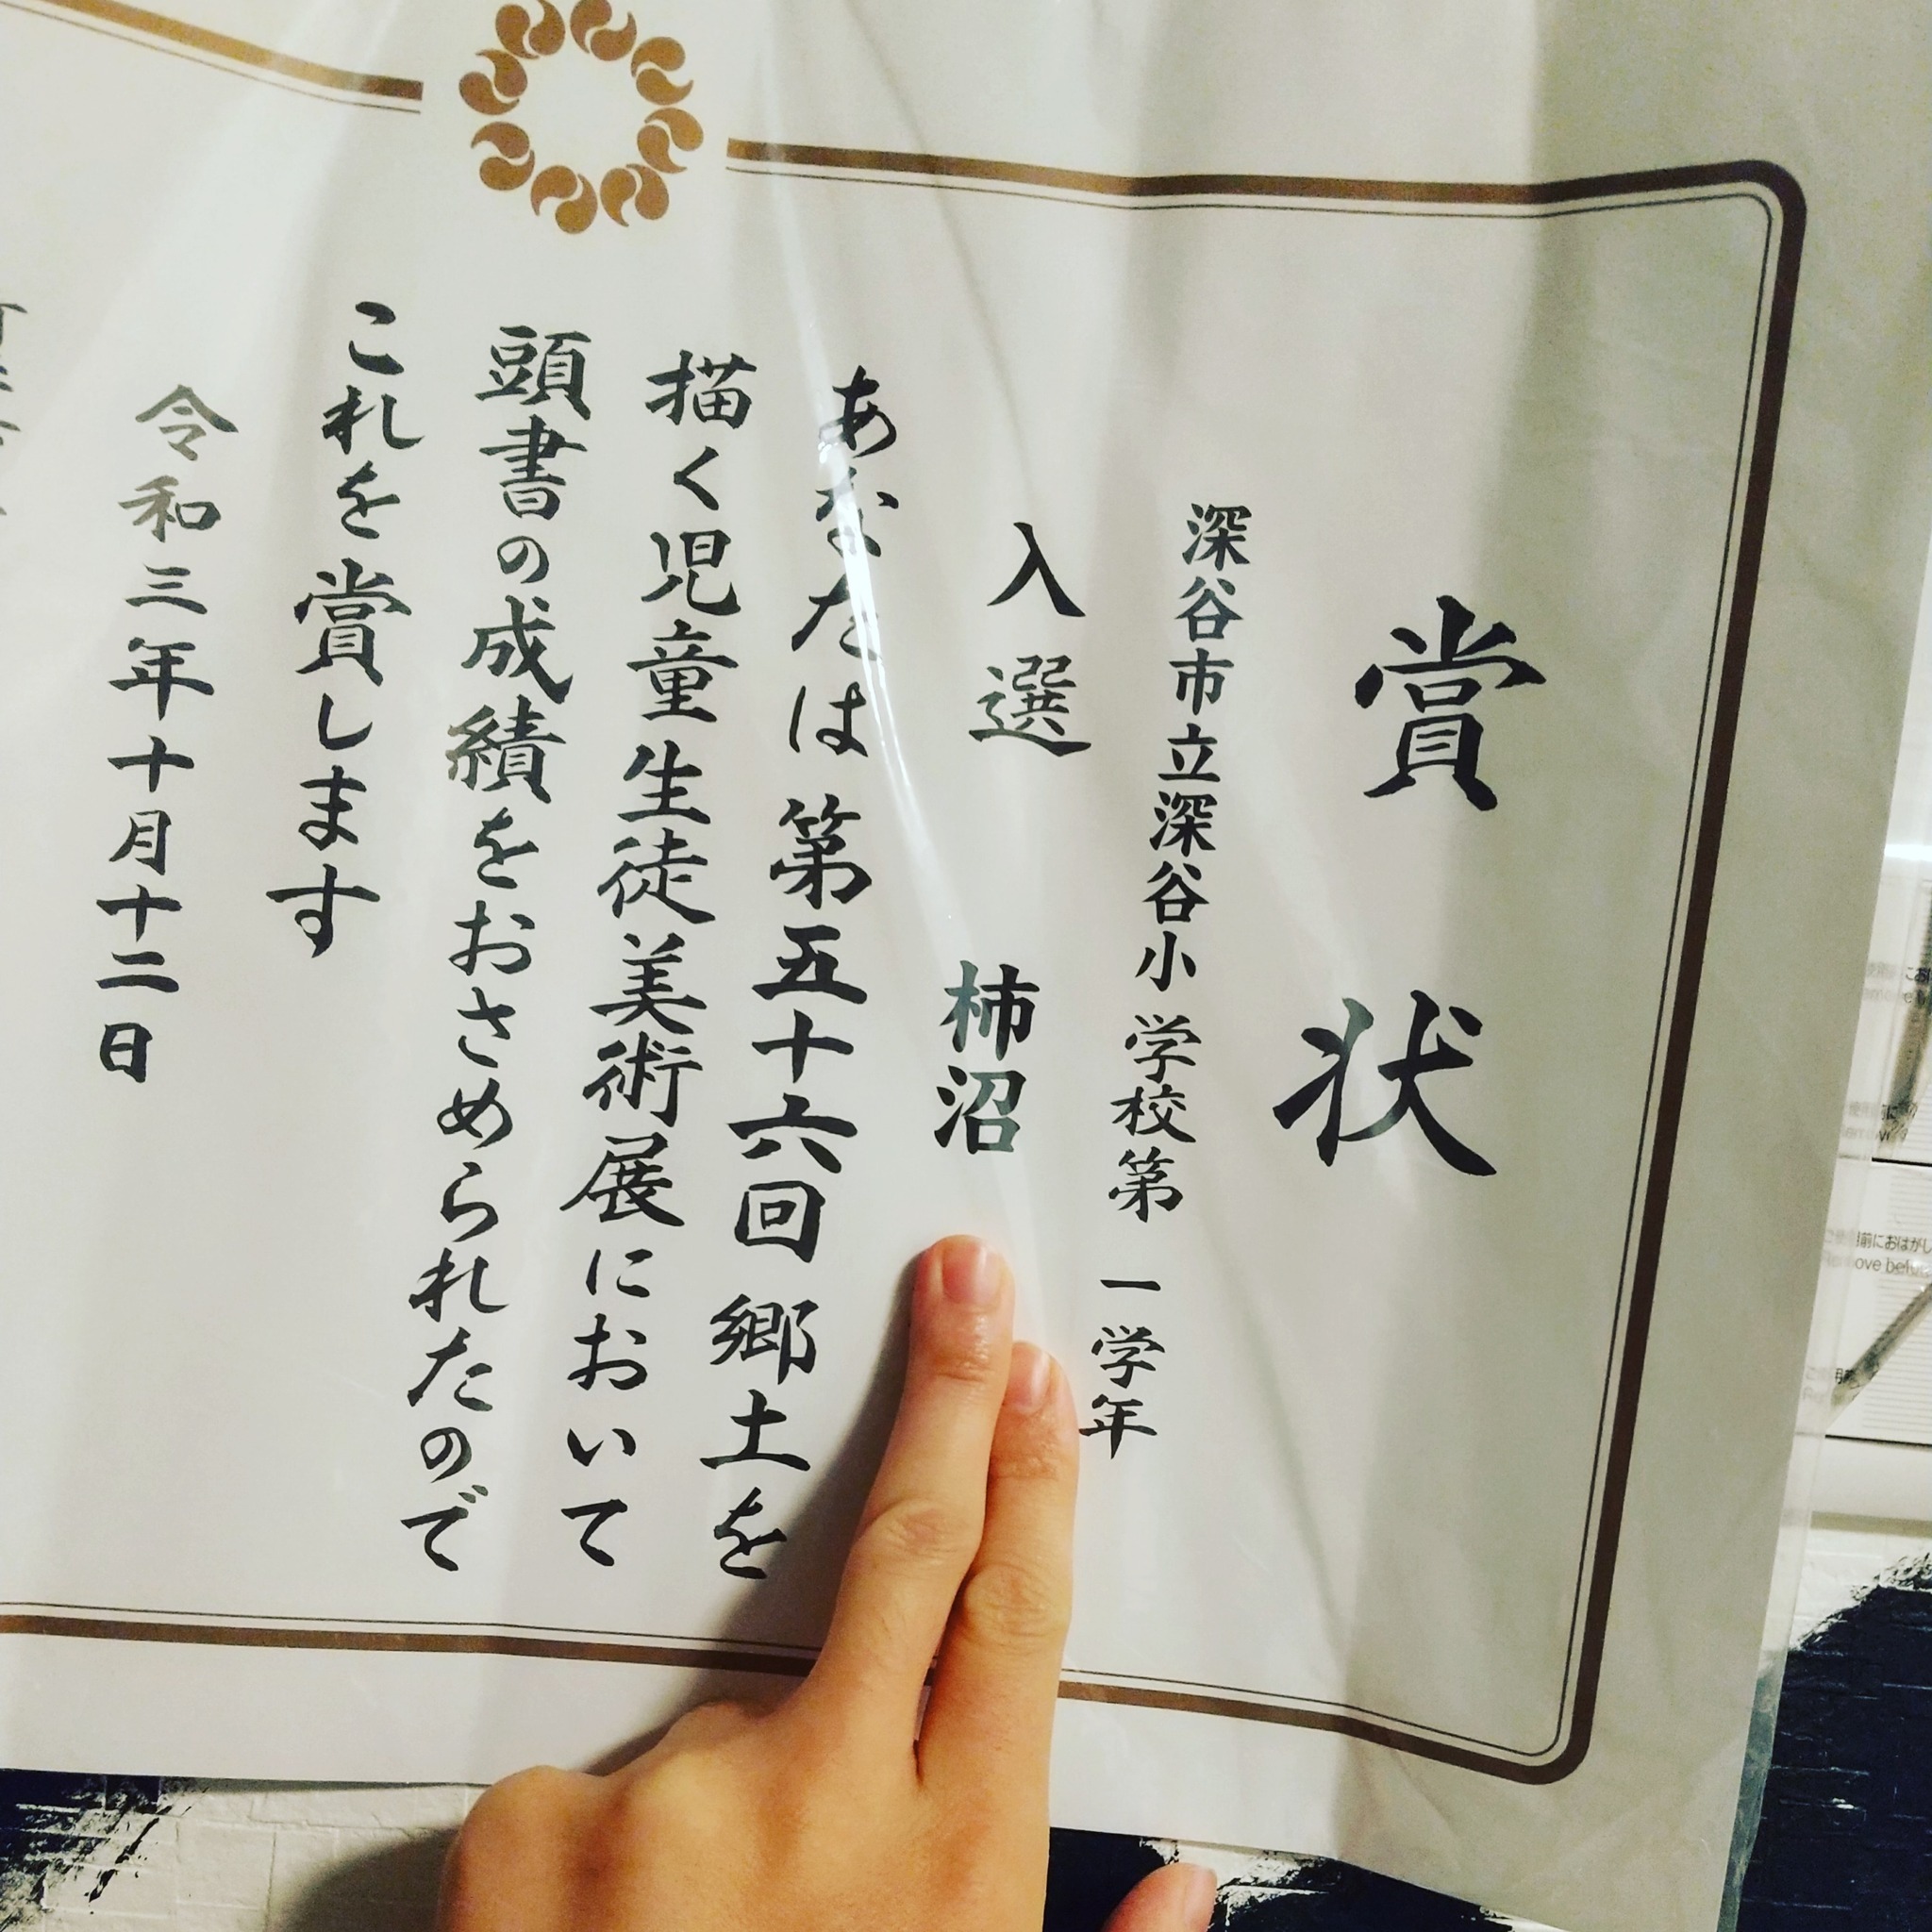 賞状
深谷市立深谷小学校第一学年
入選 柿沼
あなたは第五十六回郷土を
描く児童生徒美術展において
頭書の成績をおさめられたので
これを賞します
令和三年十月十二日